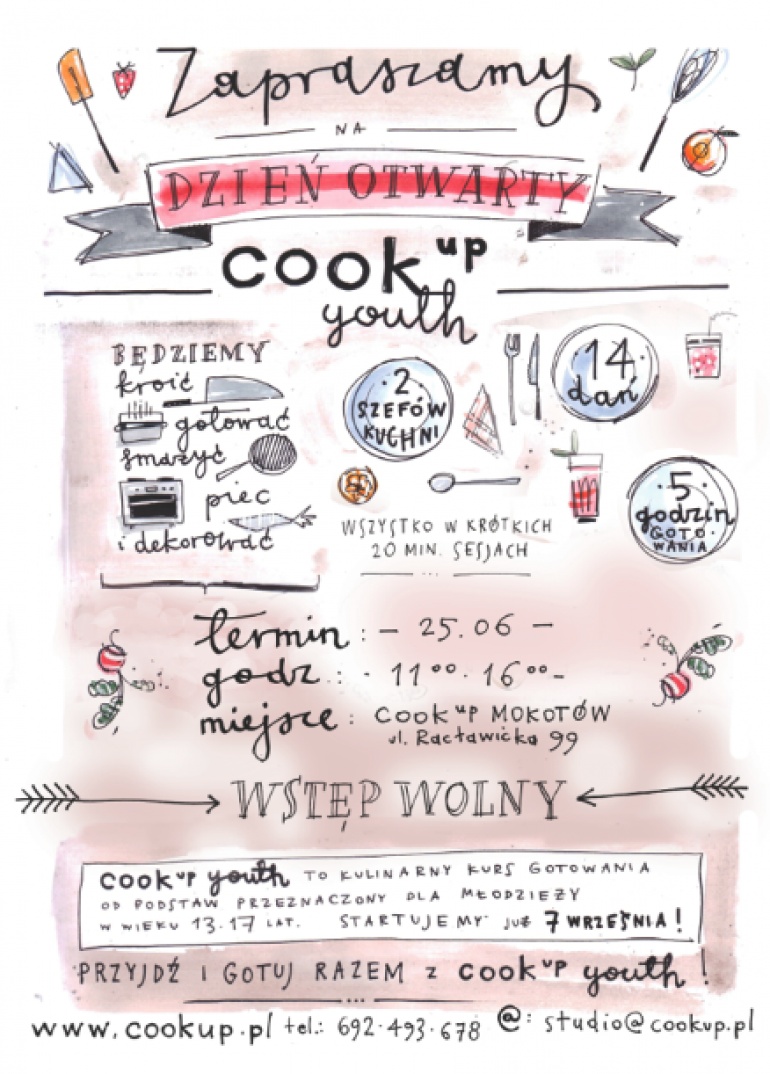 Zapraszamy
NA
DZIEŃ OTWARTY
cook up
youth
BĘDZIEMY
kroić
gotować
smażyć
piec
i dekorować
2
SZEFÓW
KUCHNI
14
dań
5
godzin
GOTO-
WANIA
WSZYSTKO W KRÓTKICH
20 MIN. SESJACH
termin : - 25.06 -
godz : - 11⁰⁰ - 16⁰⁰ -
miejsce : cook up MOKOTÓW
ul. Racławicka 99
WSTĘP WOLNY
cook up youth TO KULINARNY KURS GOTOWANIA
OD PODSTAW PRZEZNACZONY DLA MŁODZIEŻY
W WIEKU 13-17 LAT. STARTUJEMY JUŻ 7 WRZEŚNIA!
PRZYJDŹ I GOTUJ RAZEM Z cook up youth!
www.cookup.pl tel.: 692-493-678 @: studio@cookup.pl